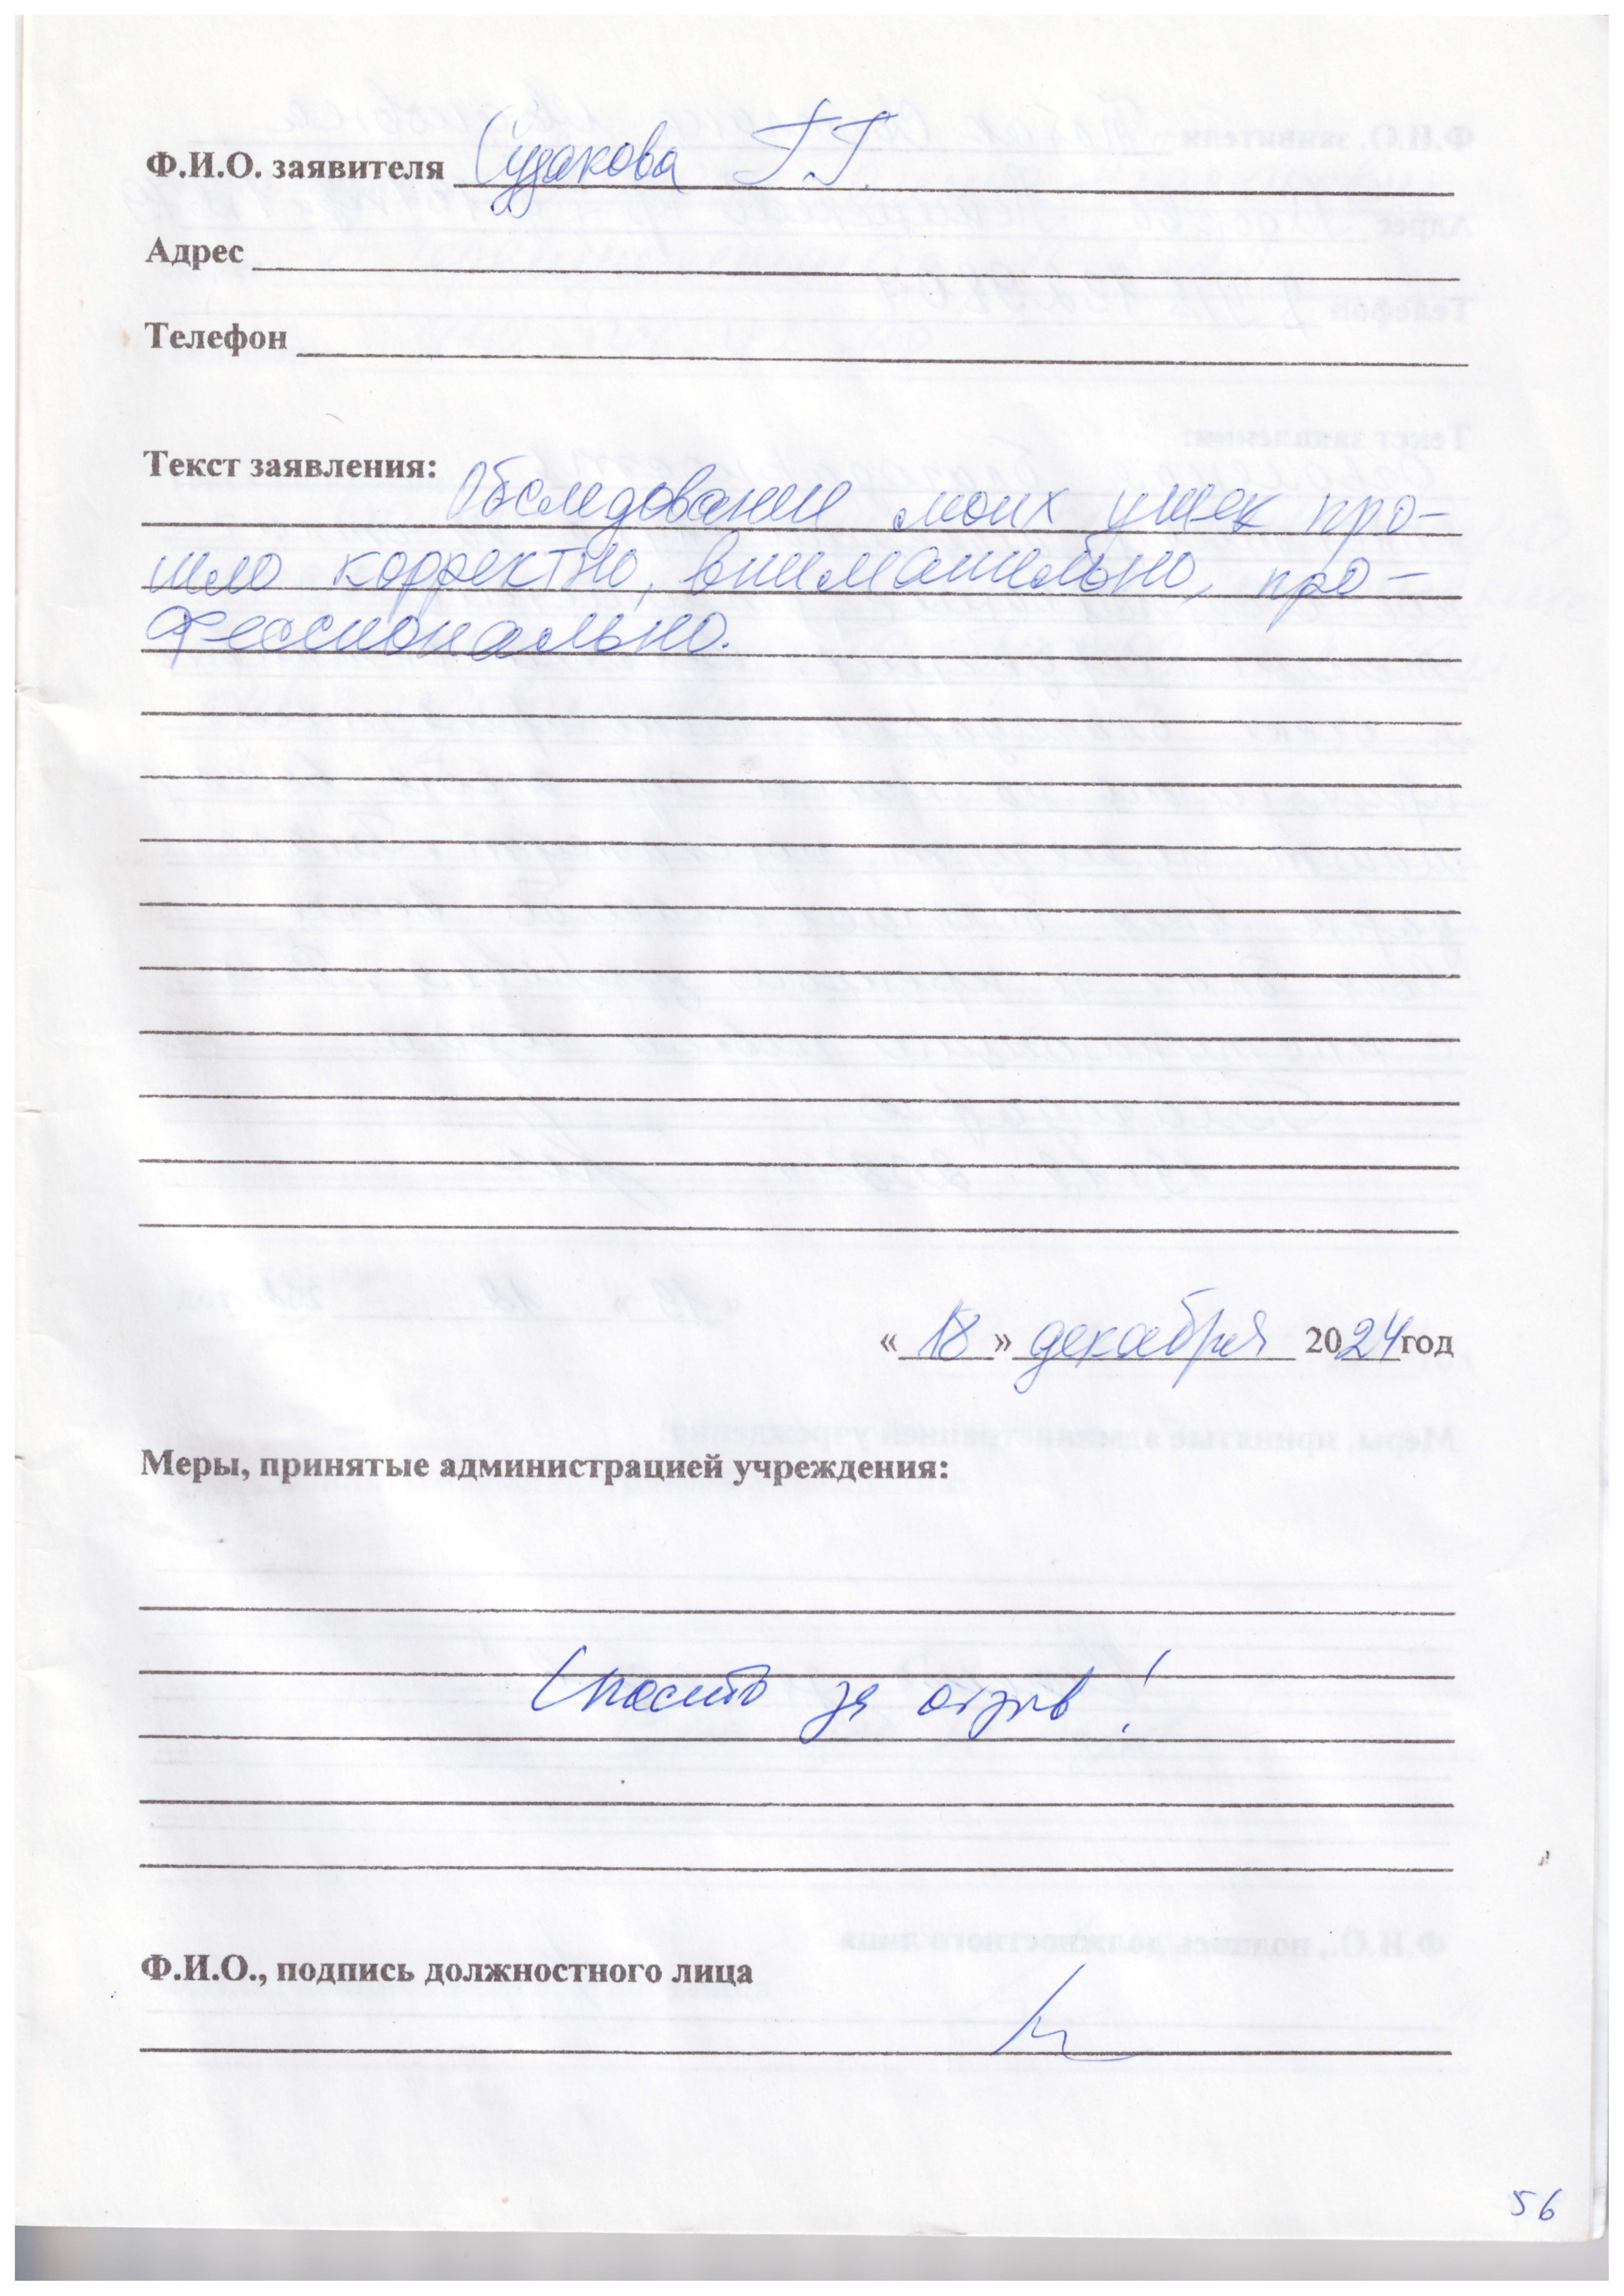 Ф.И.О. заявителя Судакова Г.Г.
Адрес
Телефон
Текст заявления:
Обследование моих ушек про-
шло корректно, внимательно, про-
фессионально.
«18» декабря 2024 год
Меры, принятые администрацией учреждения:
Спасибо за отзыв!
Ф.И.О., подпись должностного лица
56